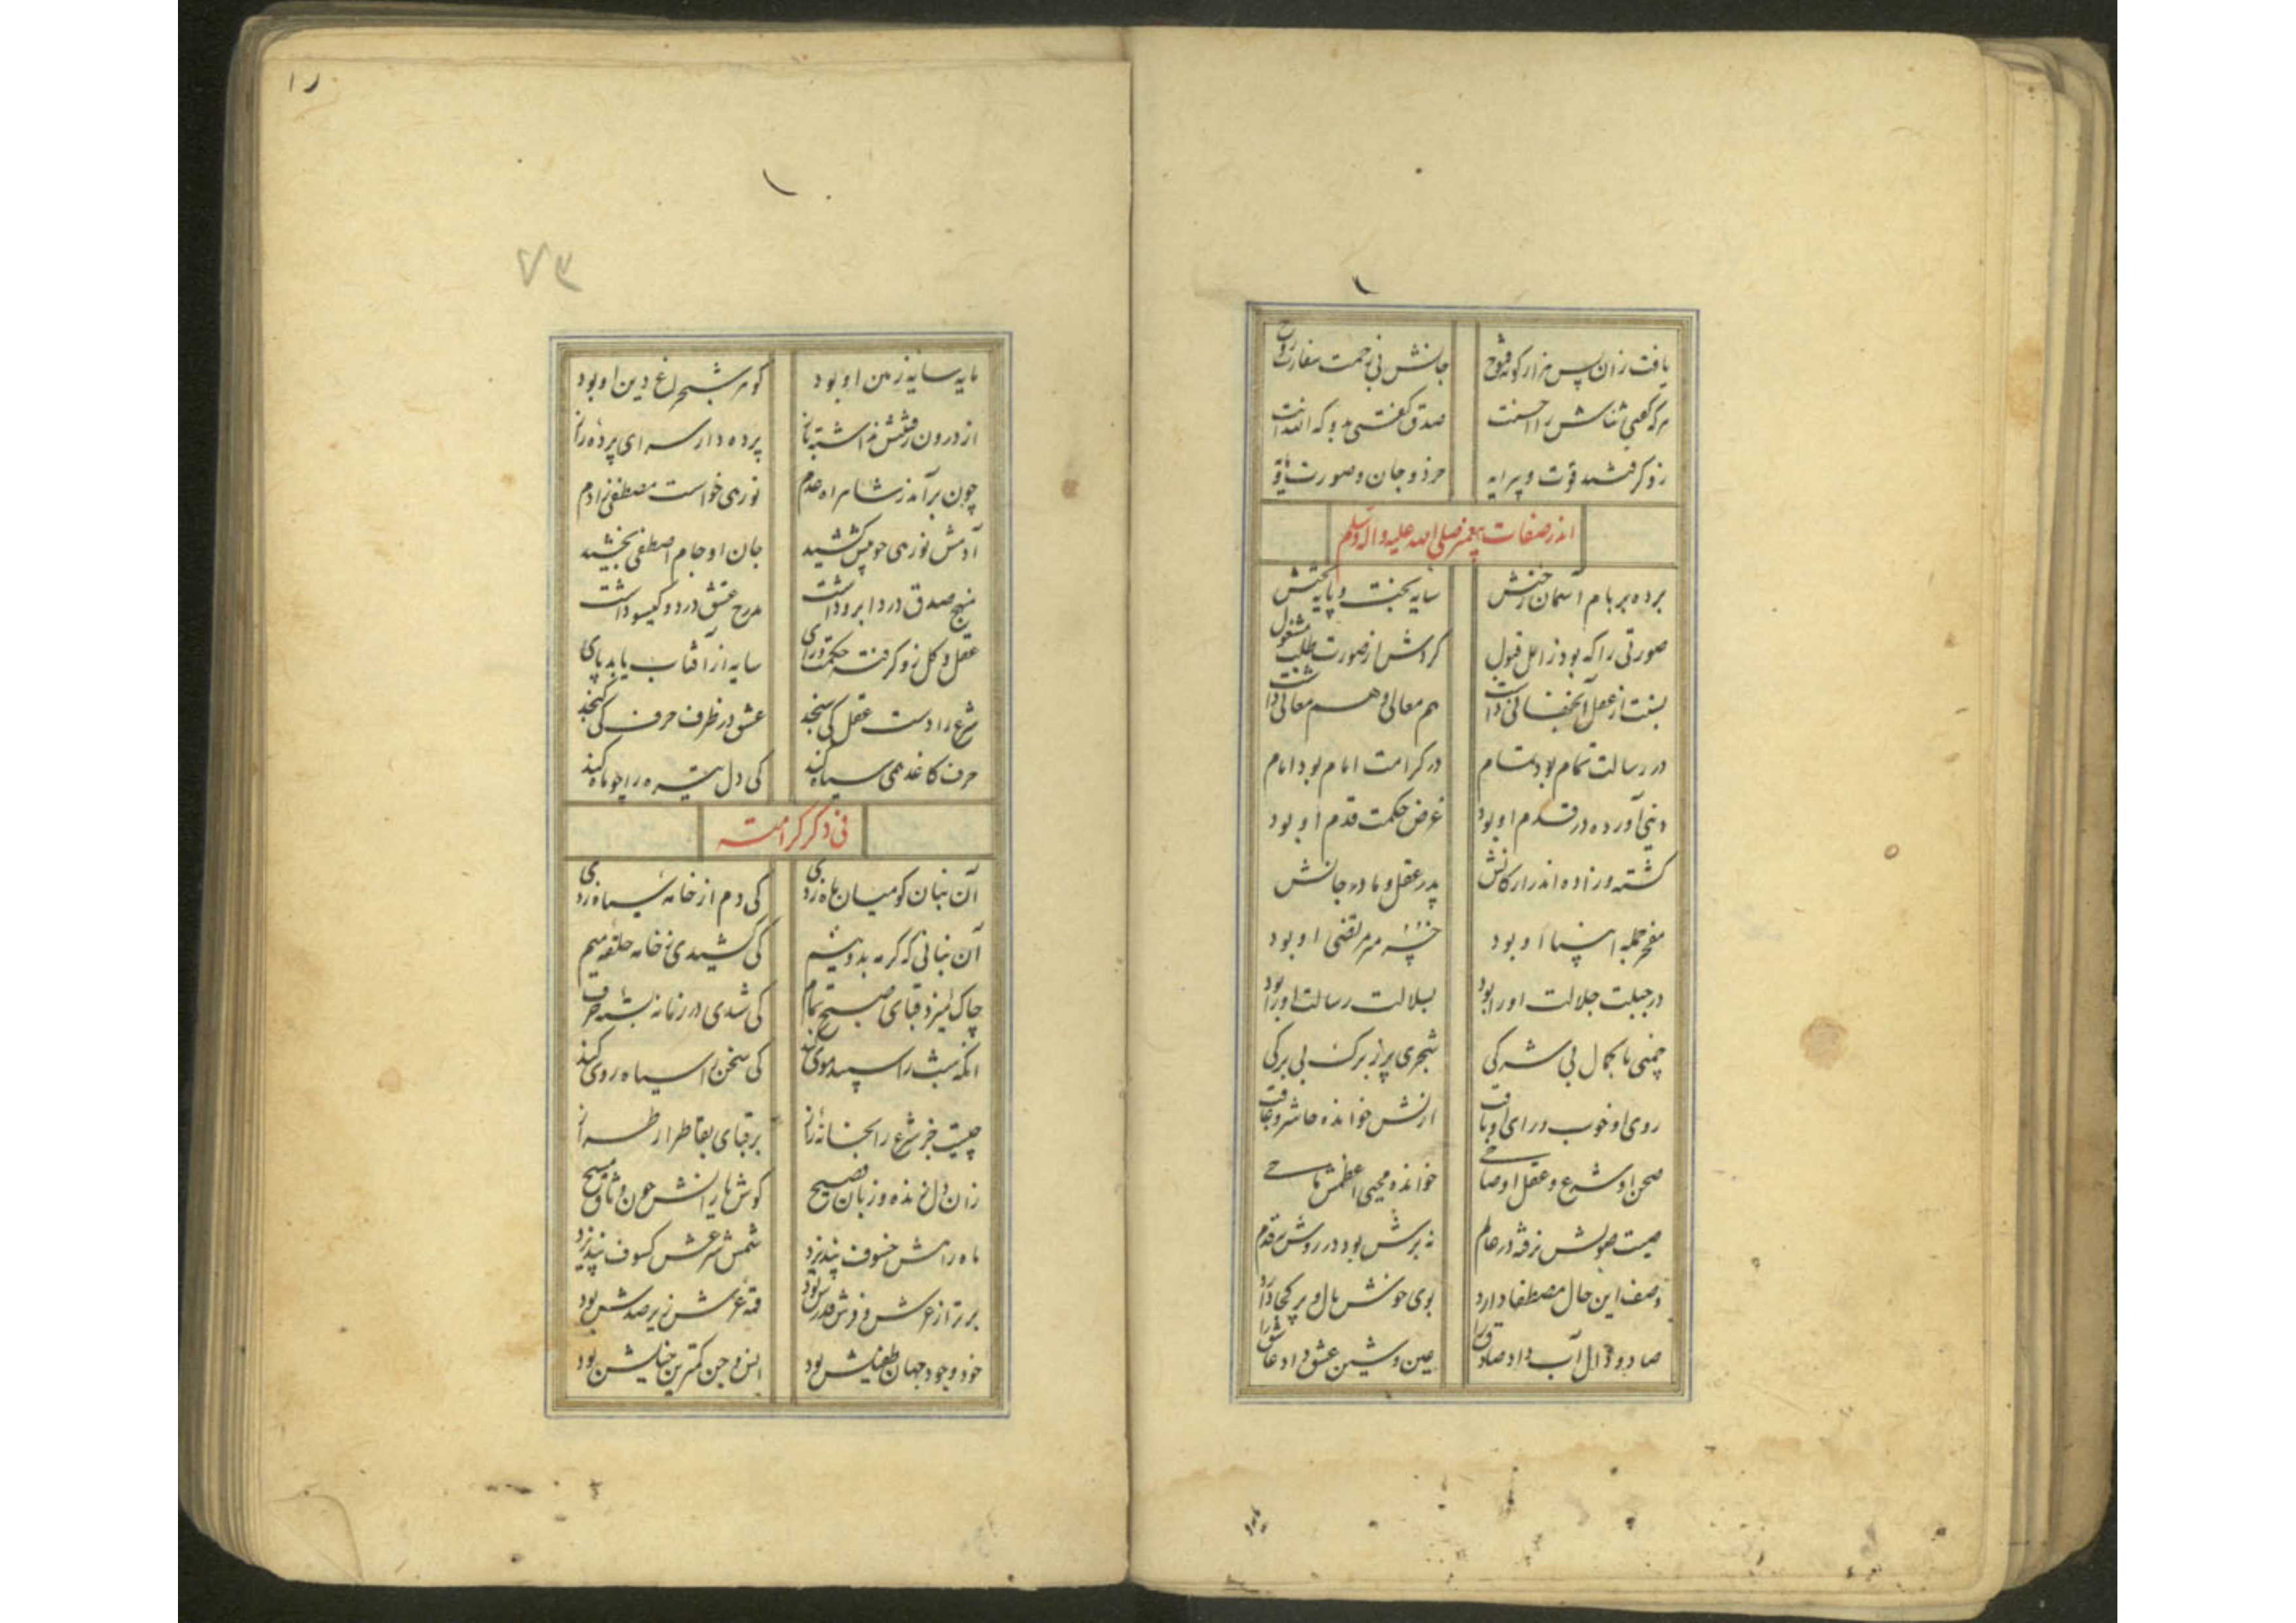 یافت زان پس هزار گونه فتوح جانش بی زحمت سفارت روح
هرکه گفتی ثناش را احسنت صدق گفتی بدو که انت انت
زو گرفتند قوت و پیرایه خرد و جان و صورت و
اندر صفات پیغمبر صلی الله علیه و آله وسلم
برده بر بام آسمان رختش سایه بخت و پایه تختش
صورتی را که بود زاهل قبول کردش از صورت طلب مشغول
از عقل آنجهانی داشت هم معالی و هم معانی داشت
در رسالت تمام بود تمام در کرامت امام بود امام
دینی آورده در قدم او بود غرض حکمت قدم او بود
گشته و زاده اندر ارکانش پدر عقل و مادر جانش
مفخر جمله انبیا او بود مرتضی او بود
در جبلت جلالت او را بود بسلالت رسالت او را بود
چمنی با کمال بی شرکی شجری پر ز برگ بی برگی
روی او خوب و رای او ثاقب ازنش خوانده حاشر و عاقب
صحن او شرع و عقل او صاحی خوانده محیی اعظمش ماحی
صیت صوتش برفته در عالم نه برش بود در روش نه قدم
وصف این حال مصطفا دارد بوی خوش بال و پر کجا دارد
صاد و دال آب داد صادق را عین و شین عشق داد عاشق را
۱۵
۱
۷۳
مایه سایه زمین او بود گوهر شبچراغ دین او بود
از درون رفتنش نداشته باز پرده دار سرای پرده راز
چون برآمد ز شاهراه عدم نورهی خواست مصطفی ز آدم
آدمش نورهی چو پیش کشید جان او جام اصطفی بخشید
منهج صدق در دو ابرو داشت مدرج عشق در دو گیسو داشت
عقل و کل زو گرفته حکمت و رای سایه از آفتاب یابد پای
شرع را دست عقل کی سنجد عشق در ظرف حرف کی گنجد
حرف کاغذ همی سیاه کند کی دل تیره را چو ماه کند
فی ذکر کرامته
آن بنان کو میان ماه زدی کی دم از خانه سیاه زدی
آن بنانی که کرد مه بدو نیم کی کشیدی ز خانه حلقه میم
چاک نیز قبای صبح تمام کی شدی در زمانه بسته حرف
آنکه شب را سپید موی کند کی سخن را سیاه روی کند
چیست جز شرع را بخانه راز بر قبای بقا طراز
زان دل زنده و زبان فصیح گوش ها پر انش چون و
ماه راهش خسوف نپذیرد شمس شرعش کسوف نپذیرد
برتر از عرش و فرش قدرش بود قبه عرش زیر صدرش بود
خود وجود جهان طفیلش بود انس و جن کمترین خیلش بود